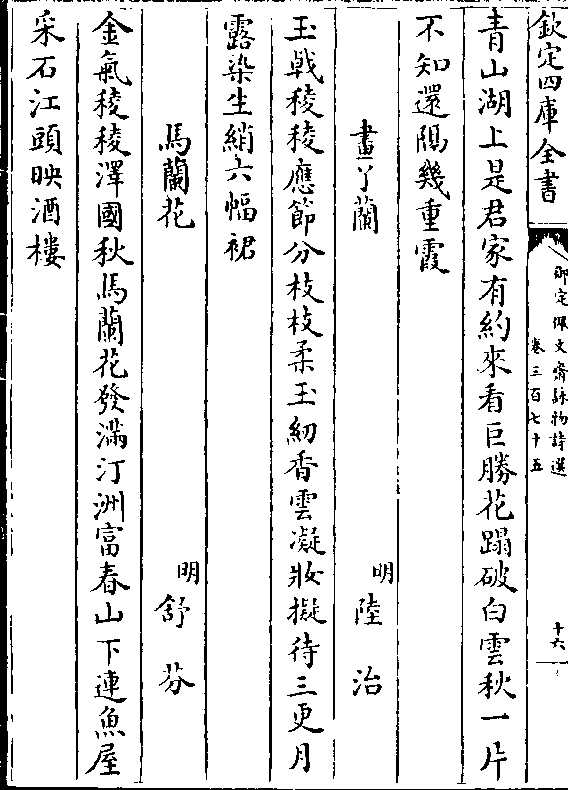 欽定四庫全書
御定佩文齋詠物詩選
卷三百七十五
十六
青山湖上是君家有約來看巨勝花蹋破白雲秋一片
不知還隔幾重霞
畫丫蘭
明 陸治
玉㦸稜稜應節分枝枝柔玉紉香雲凝妝擬待三更月
露染生綃六幅裙
馬蘭花
明 舒芬
金氣稜稜澤國秋馬蘭花發滿汀洲富春山下連魚屋
采石江頭映酒樓